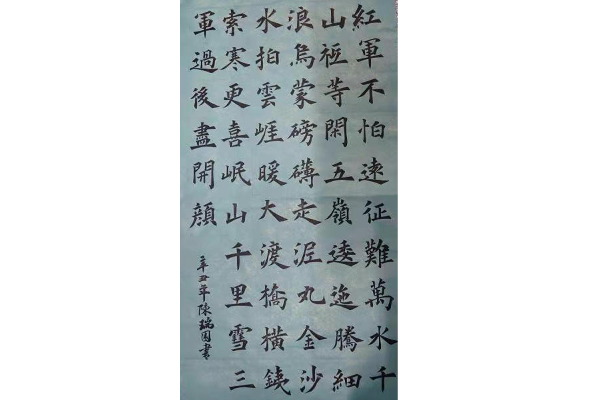 紅軍不怕遠征難萬水千
山祇等閑五嶺逶迤騰細
浪烏蒙磅礴走泥丸金沙
水拍雲崕暖大渡橋橫銕
索寒更喜岷山千里雪三
軍過後盡開顏
辛丑年陳瑞国書